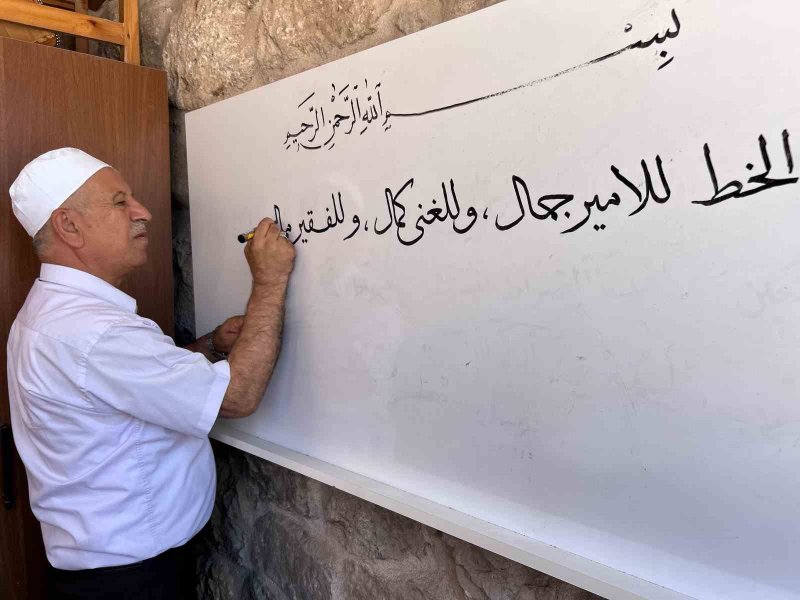 بِسْمِ اللّٰهِ الرَّحْمٰنِ الرَّحِيمِ
الخط للامير جمال، وللغني كمال، وللفقير مال